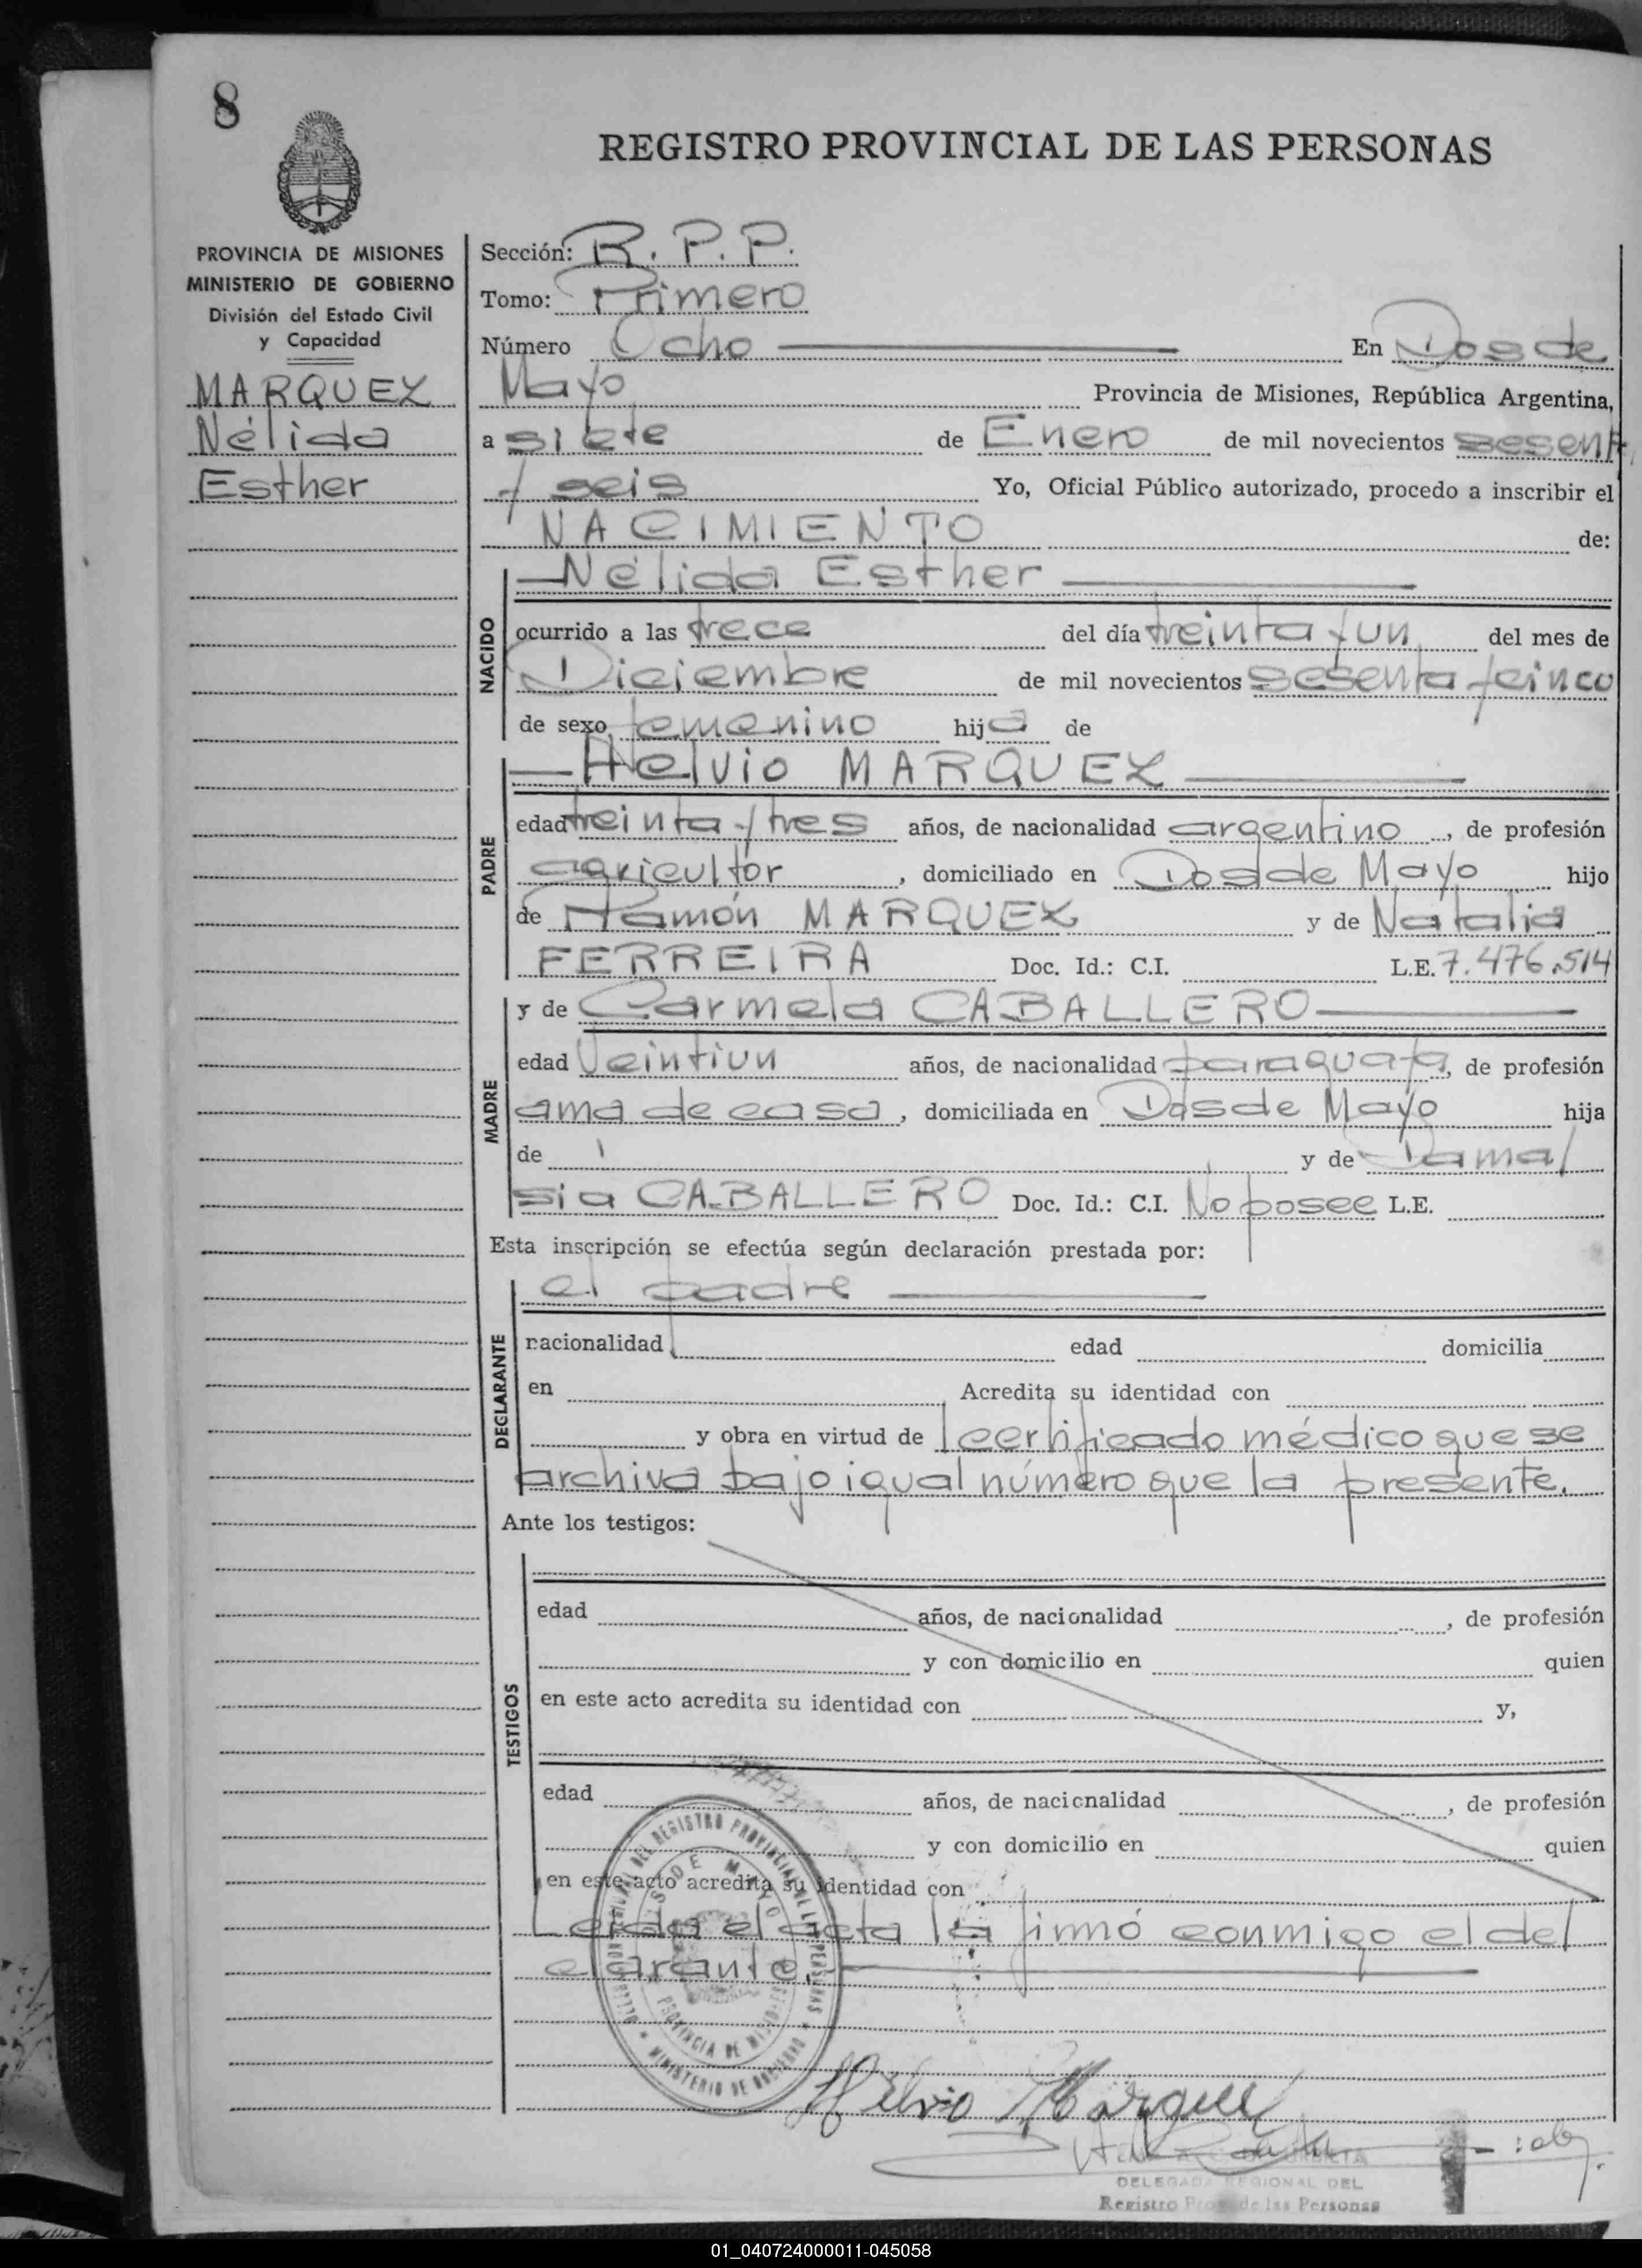 8
REGISTRO PROVINCIAL DE LAS PERSONAS
PROVINCIA DE MISIONES
MINISTERIO DE GOBIERNO
División del Estado Civil
y Capacidad
MARQUEZ
Nélida
Esther
Sección: R. P. P.
Tomo: Primero
Número Ocho En Dos de
Mayo Provincia de Misiones, República Argentina,
a siete de Enero de mil novecientos sesenta
y seis Yo, Oficial Público autorizado, procedo a inscribir el
NACIMIENTO de:
NACIDO
Nélida Esther
ocurrido a las trece del día treinta y un del mes de
Diciembre de mil novecientos sesenta y cinco
de sexo femenino hija de
PADRE
Helvio MARQUEZ
edad treinta y tres años, de nacionalidad argentino, de profesión
agricultor, domiciliado en Dos de Mayo hijo
de Ramón MARQUEZ y de Natalia
FERREIRA Doc. Id.: C.I. L.E. 7.476.514
MADRE
y de Carmela CABALLERO
edad Veintiun años, de nacionalidad paraguaya, de profesión
ama de casa, domiciliada en Dos de Mayo hija
de y de Dama/
sia CABALLERO Doc. Id.: C.I. No posee L.E.
Esta inscripción se efectúa según declaración prestada por:
DECLARANTE
el padre
nacionalidad edad domicilia
en Acredita su identidad con
y obra en virtud de certificado médico que se
archiva bajo igual número que la presente.
Ante los testigos:
TESTIGOS
edad años, de nacionalidad , de profesión
y con domicilio en quien
en este acto acredita su identidad con y,
edad años, de nacionalidad , de profesión
y con domicilio en quien
en este acto acredita su identidad con
Leida el acta la firmó conmigo el de/
clarante.
DEL REGISTRO PROVINCIAL DE LAS PERSONAS
DOS DE MAYO
PROVINCIA DE MISIONES
MINISTERIO DE GOBIERNO
Hélvio Marquez
DELEGADA REGIONAL DEL
Registro Prov. de las Personas
01_040724000011-045058